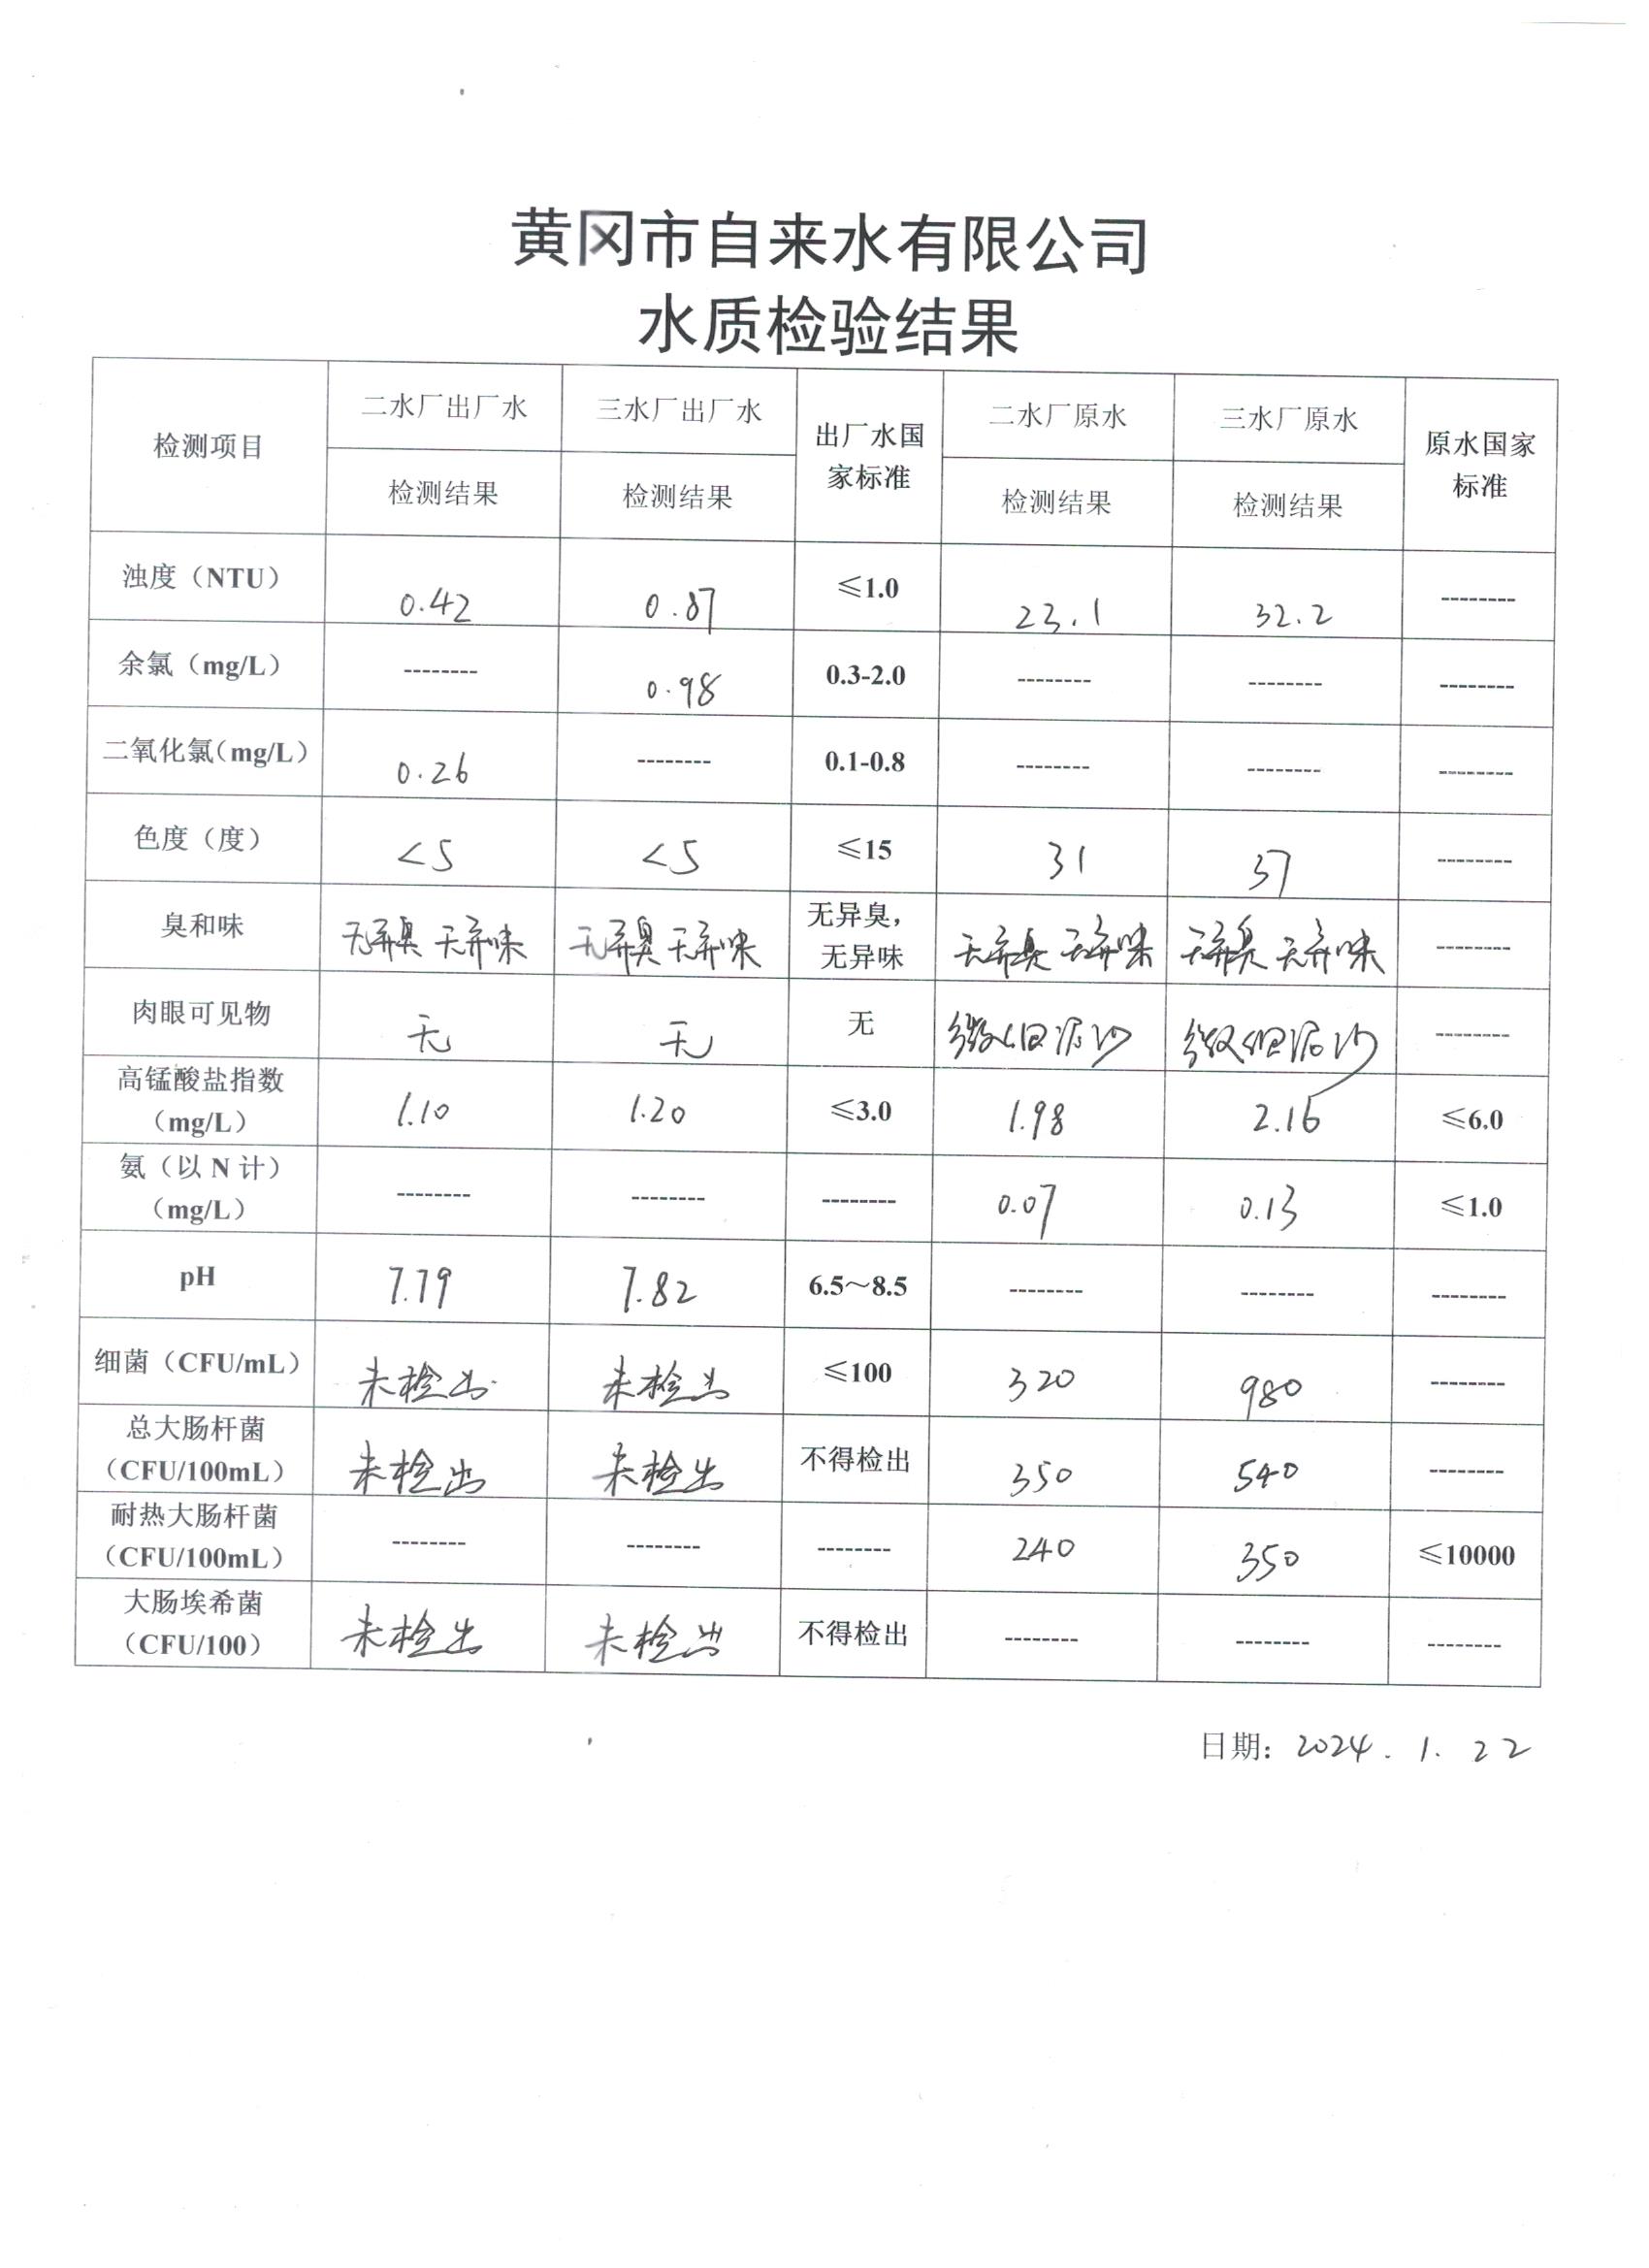 黄冈市自来水有限公司
水质检验结果
检测项目 二水厂出厂水 三水厂出厂水 出厂水国家标准 二水厂原水 三水厂原水 原水国家标准
检测结果 检测结果 检测结果 检测结果
浊度（NTU） 0.42 0.87 ≤1.0 23.1 32.2 --------
余氯（mg/L） -------- 0.98 0.3-2.0 -------- -------- --------
二氧化氯（mg/L） 0.26 -------- 0.1-0.8 -------- -------- --------
色度（度） <5 <5 ≤15 31 37 --------
臭和味 无异臭 无异味 无异臭 无异味 无异臭，无异味 无异臭 无异味 无异臭 无异味 --------
肉眼可见物 无 无 无 微细泥沙 微细泥沙 --------
高锰酸盐指数（mg/L） 1.10 1.20 ≤3.0 1.98 2.16 ≤6.0
氨（以 N 计）（mg/L） -------- -------- -------- 0.07 0.13 ≤1.0
pH 7.79 7.82 6.5～8.5 -------- -------- --------
细菌（CFU/mL） 未检出 未检出 ≤100 320 980 --------
总大肠杆菌（CFU/100mL） 未检出 未检出 不得检出 350 540 --------
耐热大肠杆菌（CFU/100mL） -------- -------- -------- 240 350 ≤10000
大肠埃希菌（CFU/100） 未检出 未检出 不得检出 -------- -------- --------
日期：2024.1.22